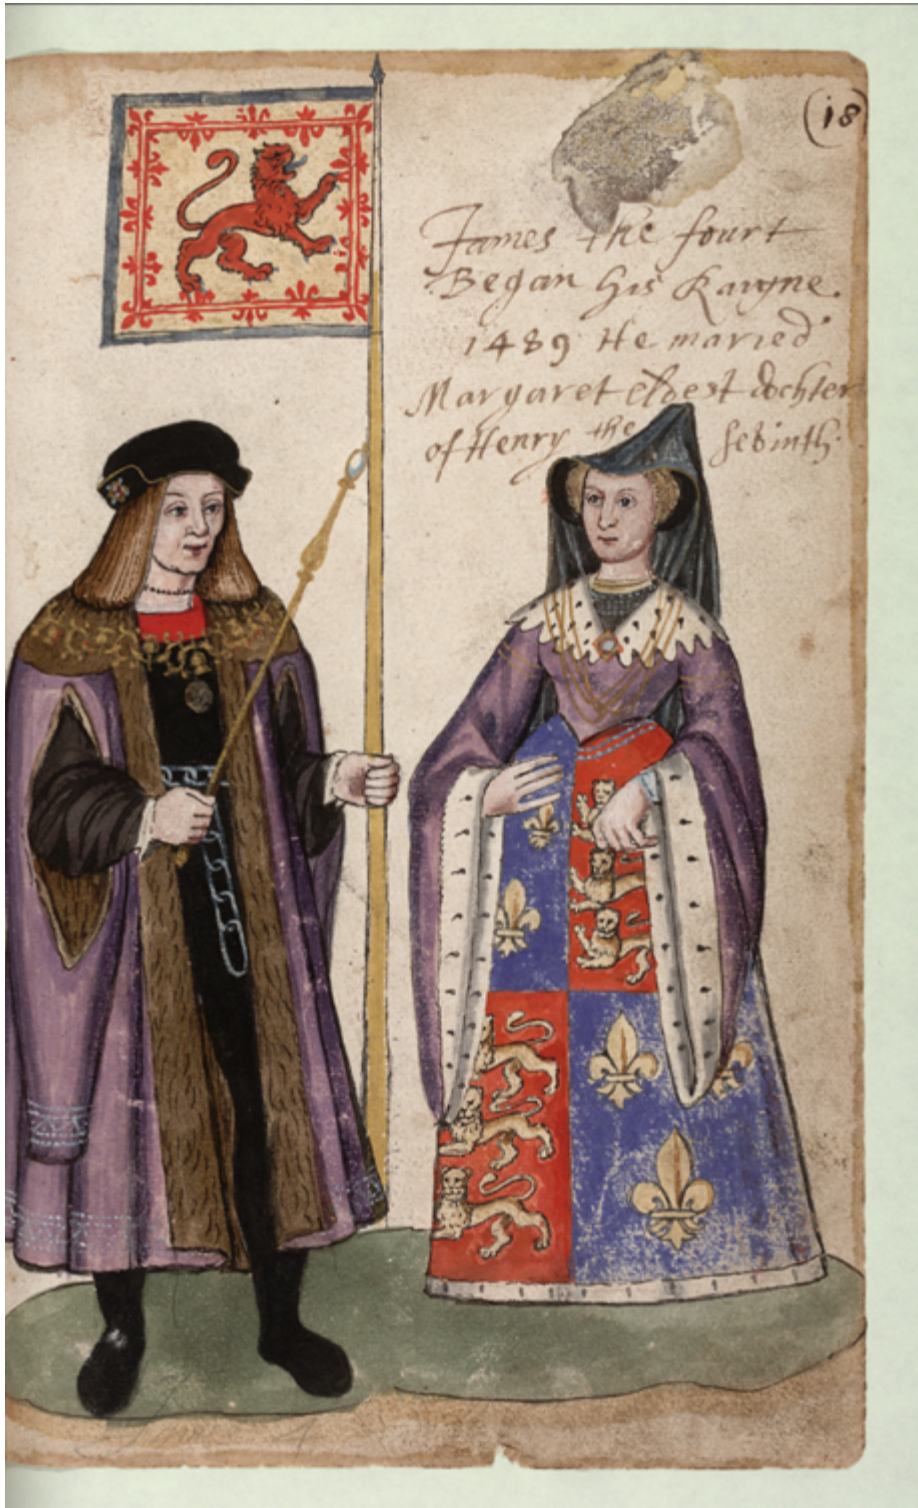 (18)
James the fourt
Began his Raigne.
1489 He maried
Margaret eldest dochter
of Henry the sevinth.